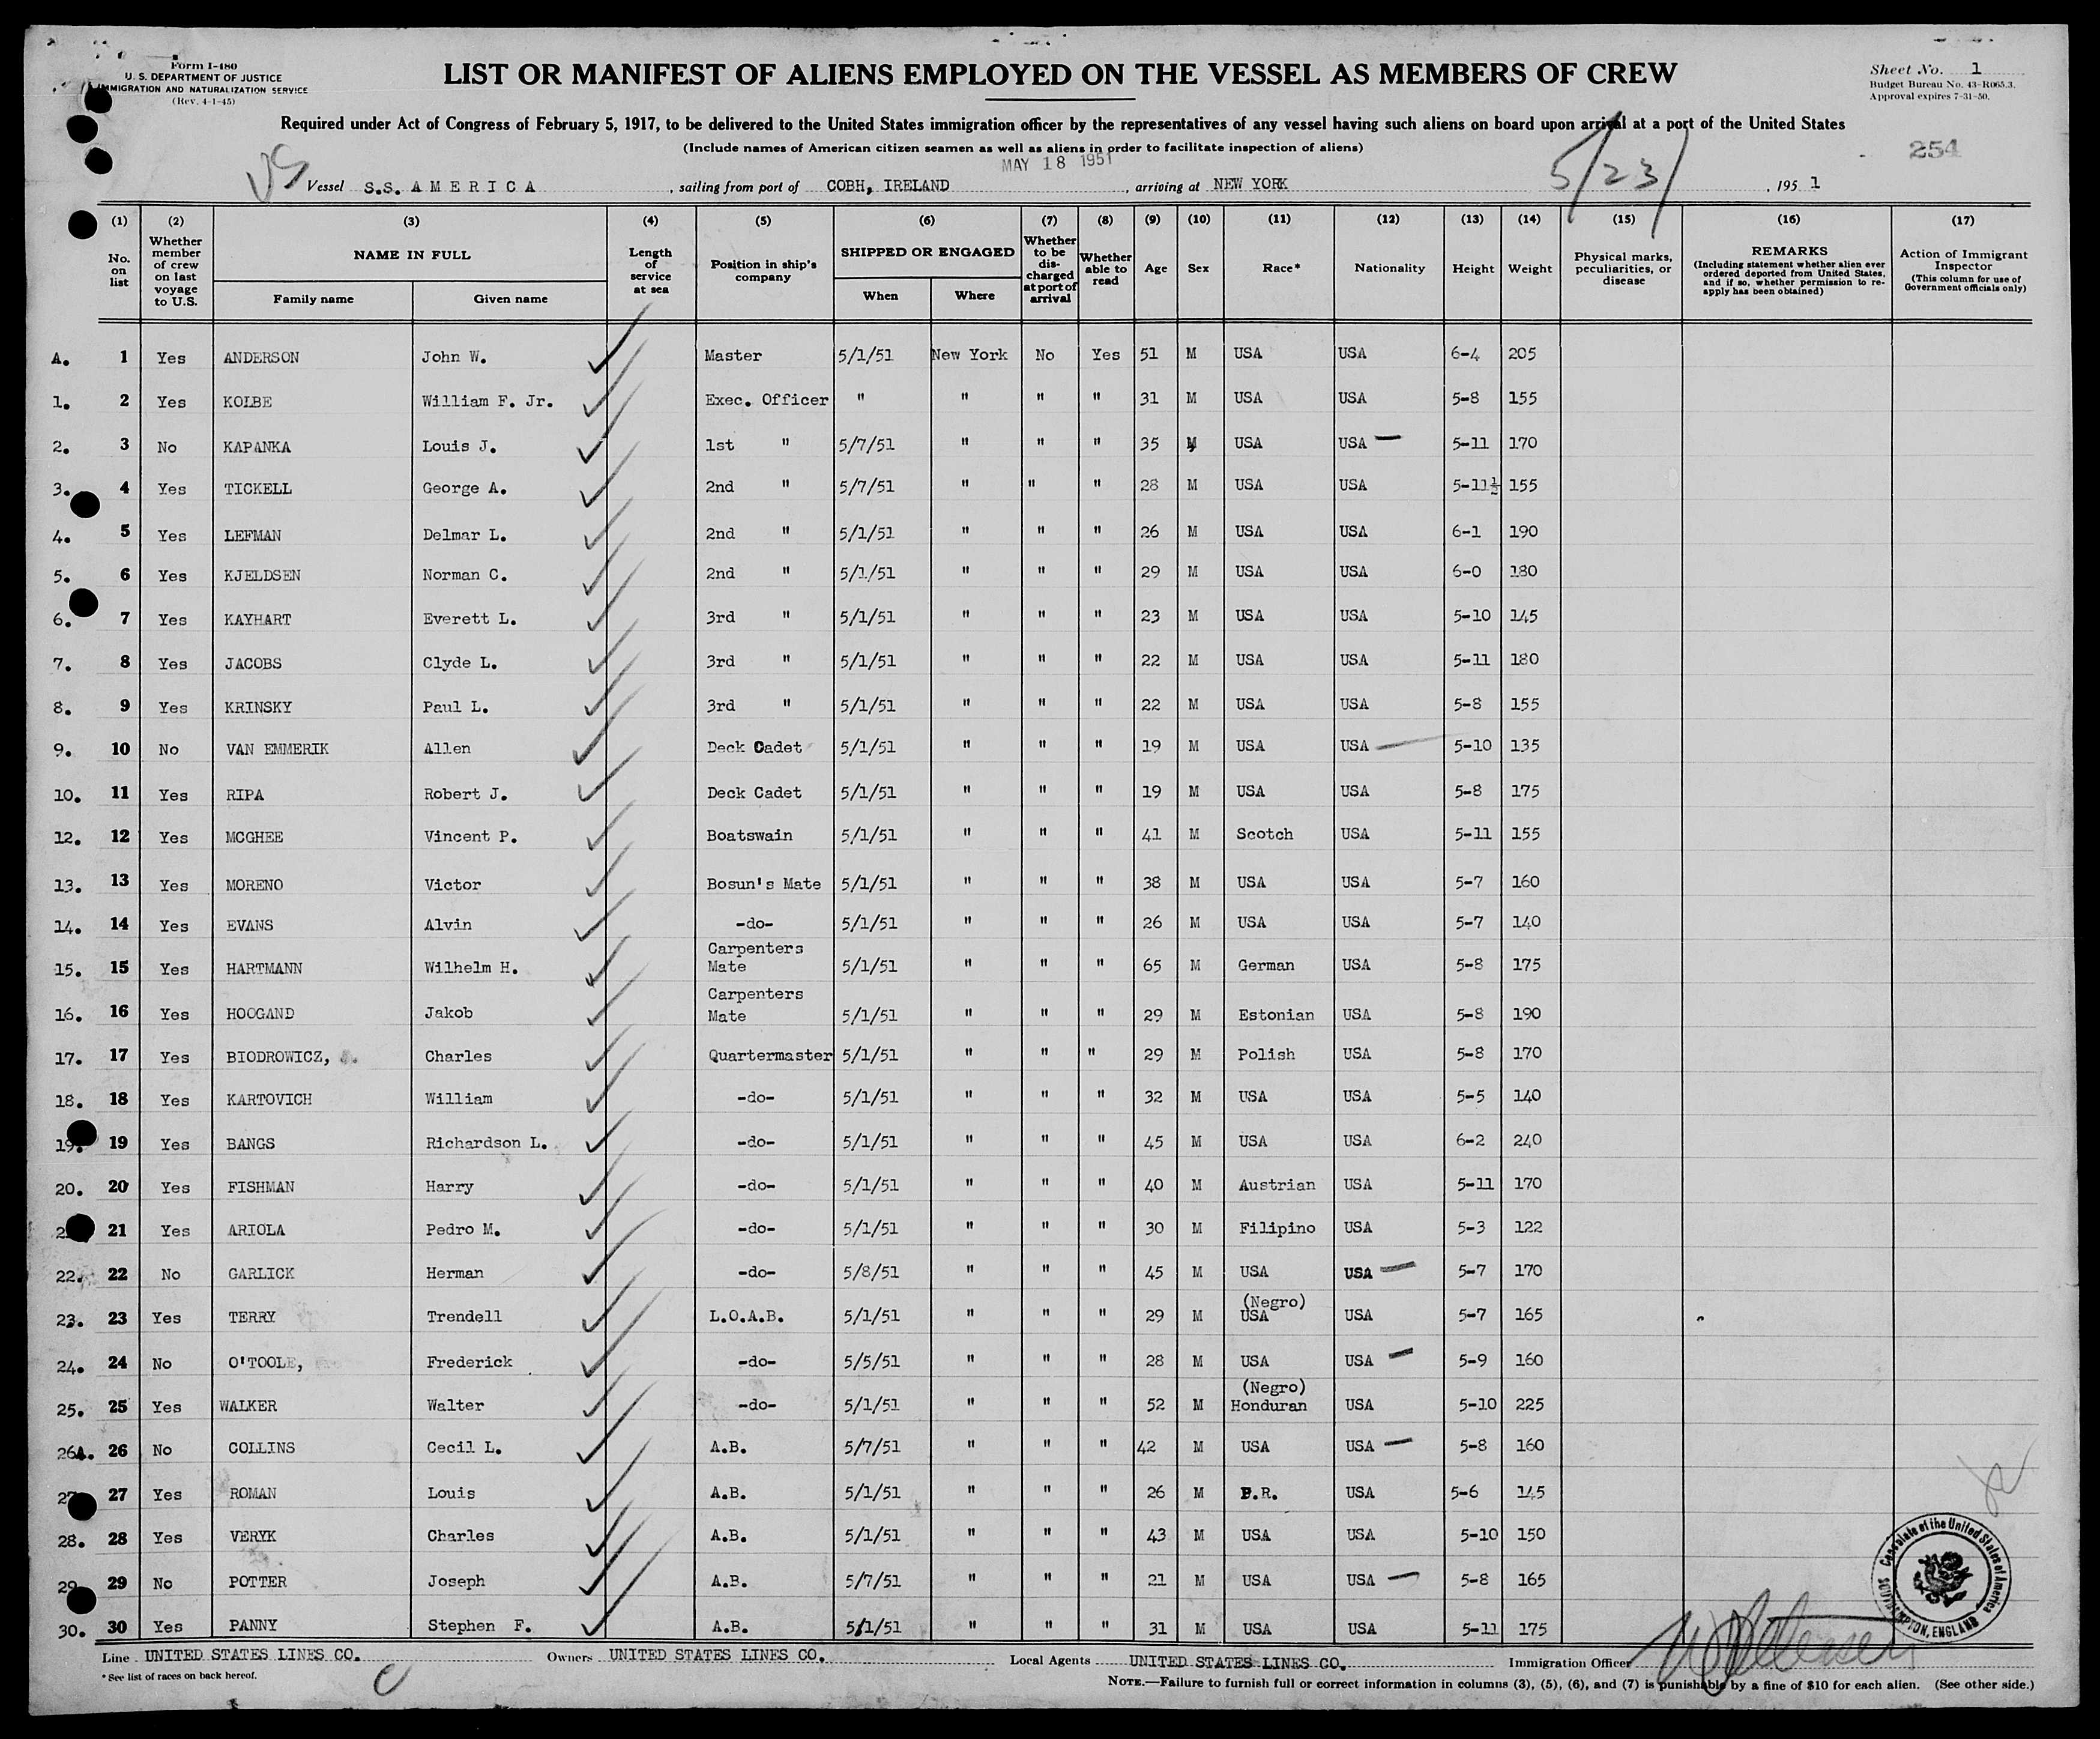 Form I-480
U. S. DEPARTMENT OF JUSTICE
IMMIGRATION AND NATURALIZATION SERVICE
(Rev. 4-1-45)
LIST OR MANIFEST OF ALIENS EMPLOYED ON THE VESSEL AS MEMBERS OF CREW
Sheet No. 1
Budget Bureau No. 43-R065.3.
Approval expires 7-31-50.
Required under Act of Congress of February 5, 1917, to be delivered to the United States immigration officer by the representatives of any vessel having such aliens on board upon arrival at a port of the United States
(Include names of American citizen seamen as well as aliens in order to facilitate inspection of aliens)
MAY 18 1951
254
Vessel S.S. AMERICA, sailing from port of COBH, IRELAND, arriving at NEW YORK 5/23/, 195 1
(1) (2) (3) (4) (5) (6) (7) (8) (9) (10) (11) (12) (13) (14) (15) (16) (17)
No. on list
Whether member of crew on last voyage to U.S.
NAME IN FULL
Family name
Given name
Length of service at sea
Position in ship's company
SHIPPED OR ENGAGED
When
Where
Whether to be discharged at port of arrival
Whether able to read
Age
Sex
Race*
Nationality
Height
Weight
Physical marks, peculiarities, or disease
REMARKS
(Including statement whether alien ever ordered deported from United States, and if so, whether permission to re-apply has been obtained)
Action of Immigrant Inspector
(This column for use of Government officials only)
A. 1 Yes ANDERSON John W. Master 5/1/51 New York No Yes 51 M USA USA 6-4 205
1. 2 Yes KOLBE William F. Jr. Exec. Officer " " " " 31 M USA USA 5-8 155
2. 3 No KAPANKA Louis J. 1st " 5/7/51 " " " 35 M USA USA — 5-11 170
3. 4 Yes TICKELL George A. 2nd " 5/7/51 " " " 28 M USA USA 5-11½ 155
4. 5 Yes LEFMAN Delmar L. 2nd " 5/1/51 " " " 26 M USA USA 6-1 190
5. 6 Yes KJELDSEN Norman C. 2nd " 5/1/51 " " " 29 M USA USA 6-0 180
6. 7 Yes KAYHART Everett L. 3rd " 5/1/51 " " " 23 M USA USA 5-10 145
7. 8 Yes JACOBS Clyde L. 3rd " 5/1/51 " " " 22 M USA USA 5-11 180
8. 9 Yes KRINSKY Paul L. 3rd " 5/1/51 " " " 22 M USA USA 5-8 155
9. 10 No VAN EMMERIK Allen Deck Cadet 5/1/51 " " " 19 M USA USA — 5-10 135
10. 11 Yes RIPA Robert J. Deck Cadet 5/1/51 " " " 19 M USA USA 5-8 175
12. 12 Yes MCGHEE Vincent P. Boatswain 5/1/51 " " " 41 M Scotch USA 5-11 155
13. 13 Yes MORENO Victor Bosun's Mate 5/1/51 " " " 38 M USA USA 5-7 160
14. 14 Yes EVANS Alvin -do- 5/1/51 " " " 26 M USA USA 5-7 140
15. 15 Yes HARTMANN Wilhelm H. Carpenters Mate 5/1/51 " " " 65 M German USA 5-8 175
16. 16 Yes HOOGAND Jakob Carpenters Mate 5/1/51 " " " 29 M Estonian USA 5-8 190
17. 17 Yes BIODROWICZ, Charles Quartermaster 5/1/51 " " " 29 M Polish USA 5-8 170
18. 18 Yes KARTOVICH William -do- 5/1/51 " " " 32 M USA USA 5-5 140
19. 19 Yes BANGS Richardson L. -do- 5/1/51 " " " 45 M USA USA 6-2 240
20. 20 Yes FISHMAN Harry -do- 5/1/51 " " " 40 M Austrian USA 5-11 170
21 Yes ARIOLA Pedro M. -do- 5/1/51 " " " 30 M Filipino USA 5-3 122
22. 22 No GARLICK Herman -do- 5/8/51 " " " 45 M USA USA — 5-7 170
23. 23 Yes TERRY Trendell L.O.A.B. 5/1/51 " " " 29 M (Negro) USA USA 5-7 165
24. 24 No O'TOOLE, Frederick -do- 5/5/51 " " " 28 M USA USA — 5-9 160
25. 25 Yes WALKER Walter -do- 5/1/51 " " " 52 M (Negro) Honduran USA 5-10 225
26A. 26 No COLLINS Cecil L. A.B. 5/7/51 " " " 42 M USA USA — 5-8 160
27 Yes ROMAN Louis A.B. 5/1/51 " " " 26 M P.R. USA 5-6 145
28. 28 Yes VERYK Charles A.B. 5/1/51 " " " 43 M USA USA 5-10 150
29 29 No POTTER Joseph A.B. 5/7/51 " " " 21 M USA USA — 5-8 165
30. 30 Yes PANNY Stephen F. A.B. 5/1/51 " " " 31 M USA USA 5-11 175
Consulate of the United States of America
SOUTHAMPTON, ENGLAND
Line UNITED STATES LINES CO. Owners UNITED STATES LINES CO. Local Agents UNITED STATES LINES CO. Immigration Officer
*See list of races on back hereof.
NOTE.—Failure to furnish full or correct information in columns (3), (5), (6), and (7) is punishable by a fine of $10 for each alien. (See other side.)